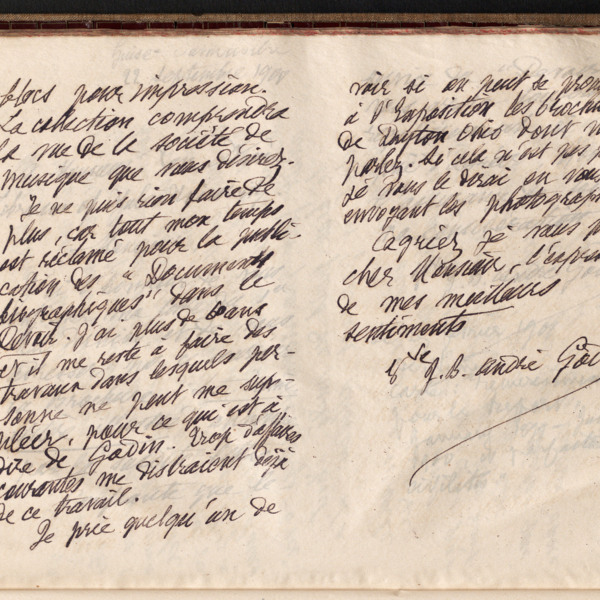 blocs pour impression.
La collection comprendra
la vue de la société de
musique que vous désirez.
Je ne puis rien faire de
plus, car tout mon temps
est réclamé pour la publi-
cation des "Documents
biographiques" dans le
Devoir. J'ai plus de 60 ans
et il me reste à faire des
travaux dans lesquels per-
sonne ne peut me sup-
pléer, pour ce qui est à
dire de Godin. Trop d'affaires
courantes me distraient déjà
de ce travail.
Je prie quelqu'un de
voir si on peut se pro
à l'Exposition les broch
de Dayton Ohio dont v
parlez. Si cela n'est pas p
je vous le dirai en vous
envoyant les photograp
Cagréez je vous p
cher Monsieur, l'expre
de mes meilleurs
sentiments
Vve J. B. andré God